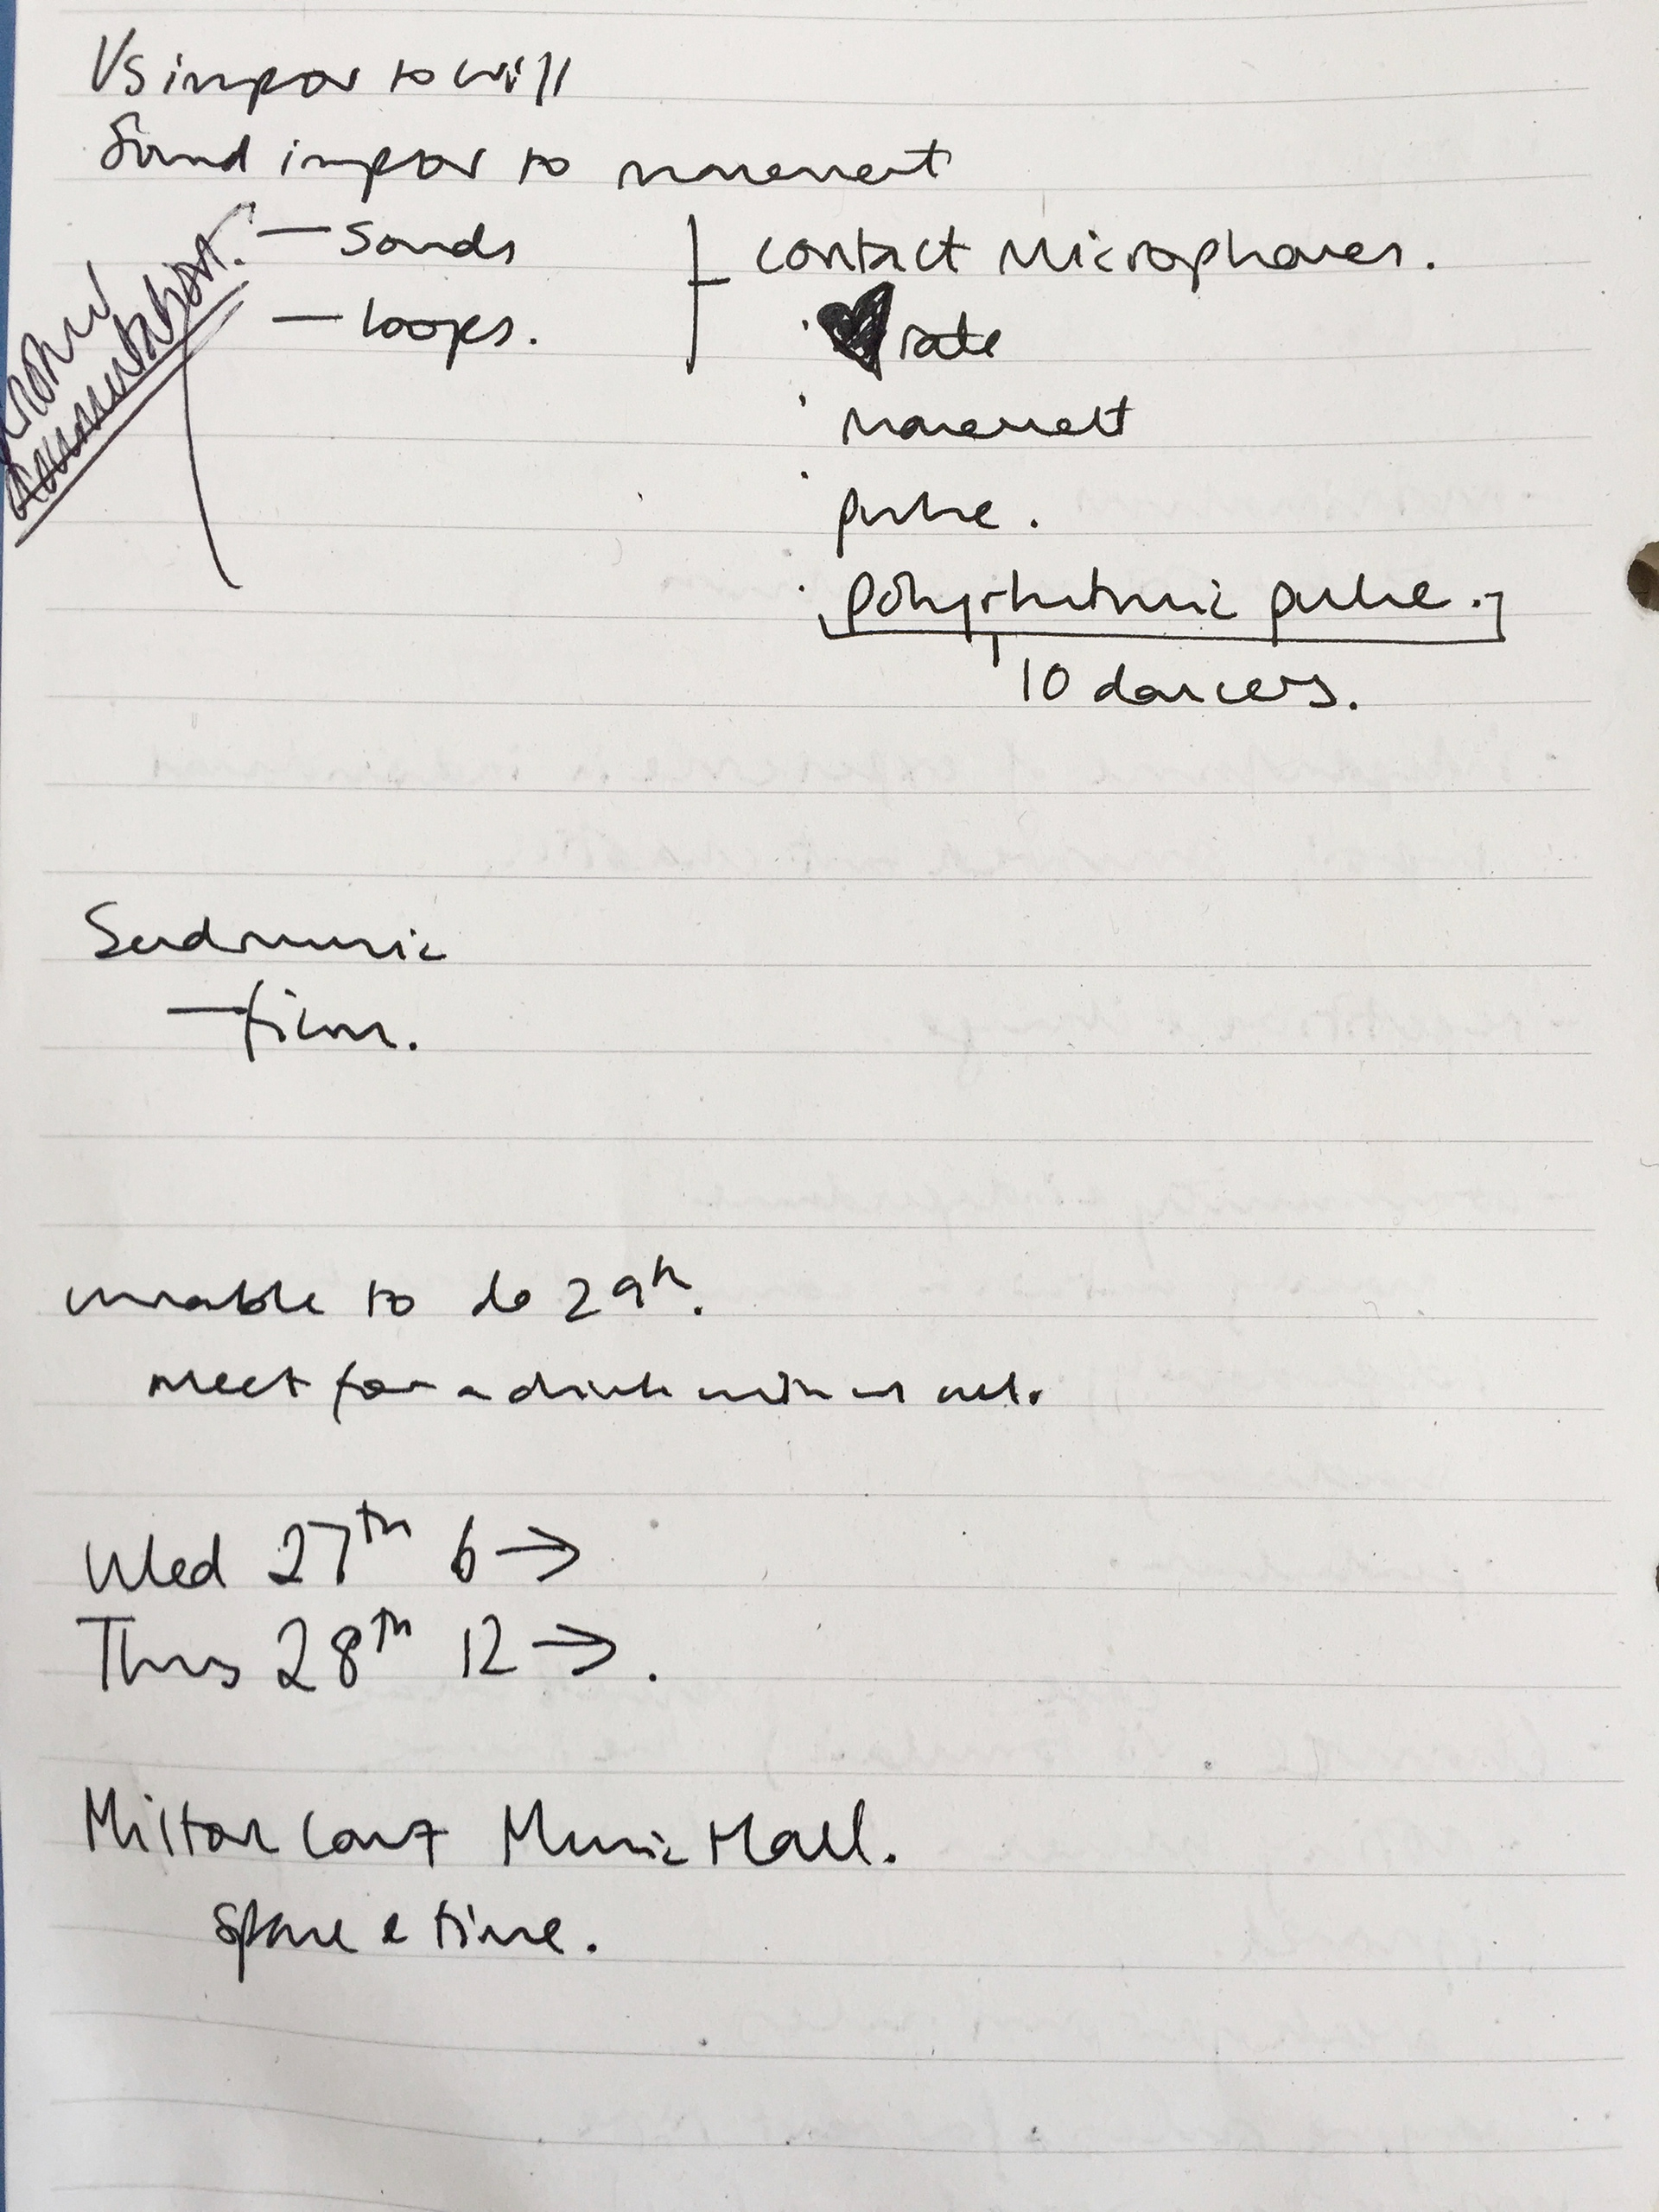 Vs impor to will
Sound impor to movement
— Sounds
— loops.
contact Microphones.
· rate
· movement
· pulse.
· polyrhthmic pulse.
10 dancers.
Send music
— films.
unable to do 29th.
meet for a drink with us all.
Wed 27th 6 →
Thurs 28th 12 → .
Milton Court Music Hall.
Space & time.